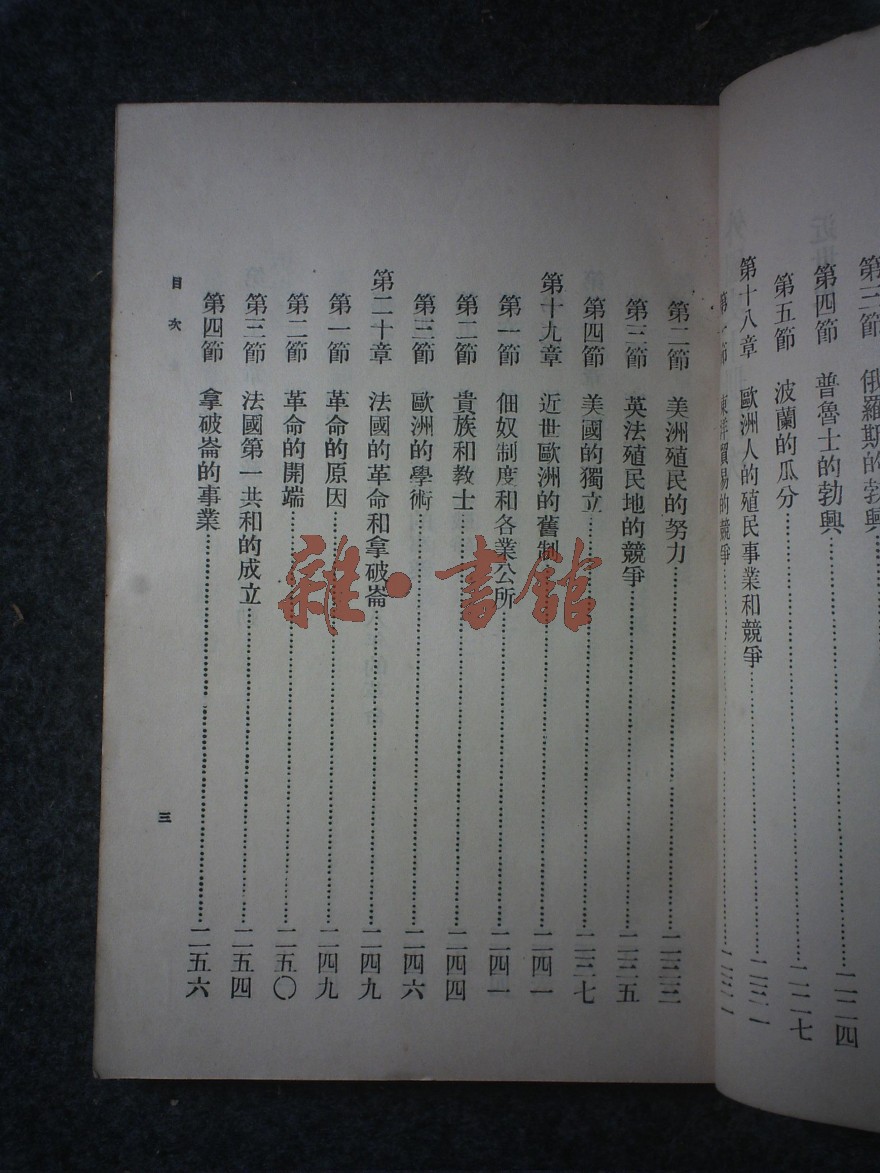 第三節　俄羅斯的勃興
第四節　普魯士的勃興……二二四
第五節　波蘭的瓜分……二二七
第十八章　歐洲人的殖民事業和競爭……二三一
第一節　東洋貿易的競爭……二三一
第二節　美洲殖民的努力……二三三
第三節　英法殖民地的競爭……二三五
第四節　美國的獨立……二三七
第十九章　近世歐洲的舊制……二四一
第一節　佃奴制度和各業公所……二四一
第二節　貴族和教士……二四四
第三節　歐洲的學術……二四六
第二十章　法國的革命和拿破崙……二四九
第一節　革命的原因……二四九
第二節　革命的開端……二五〇
第三節　法國第一共和的成立……二五四
第四節　拿破崙的事業……二五六
目次
三
雜·書館